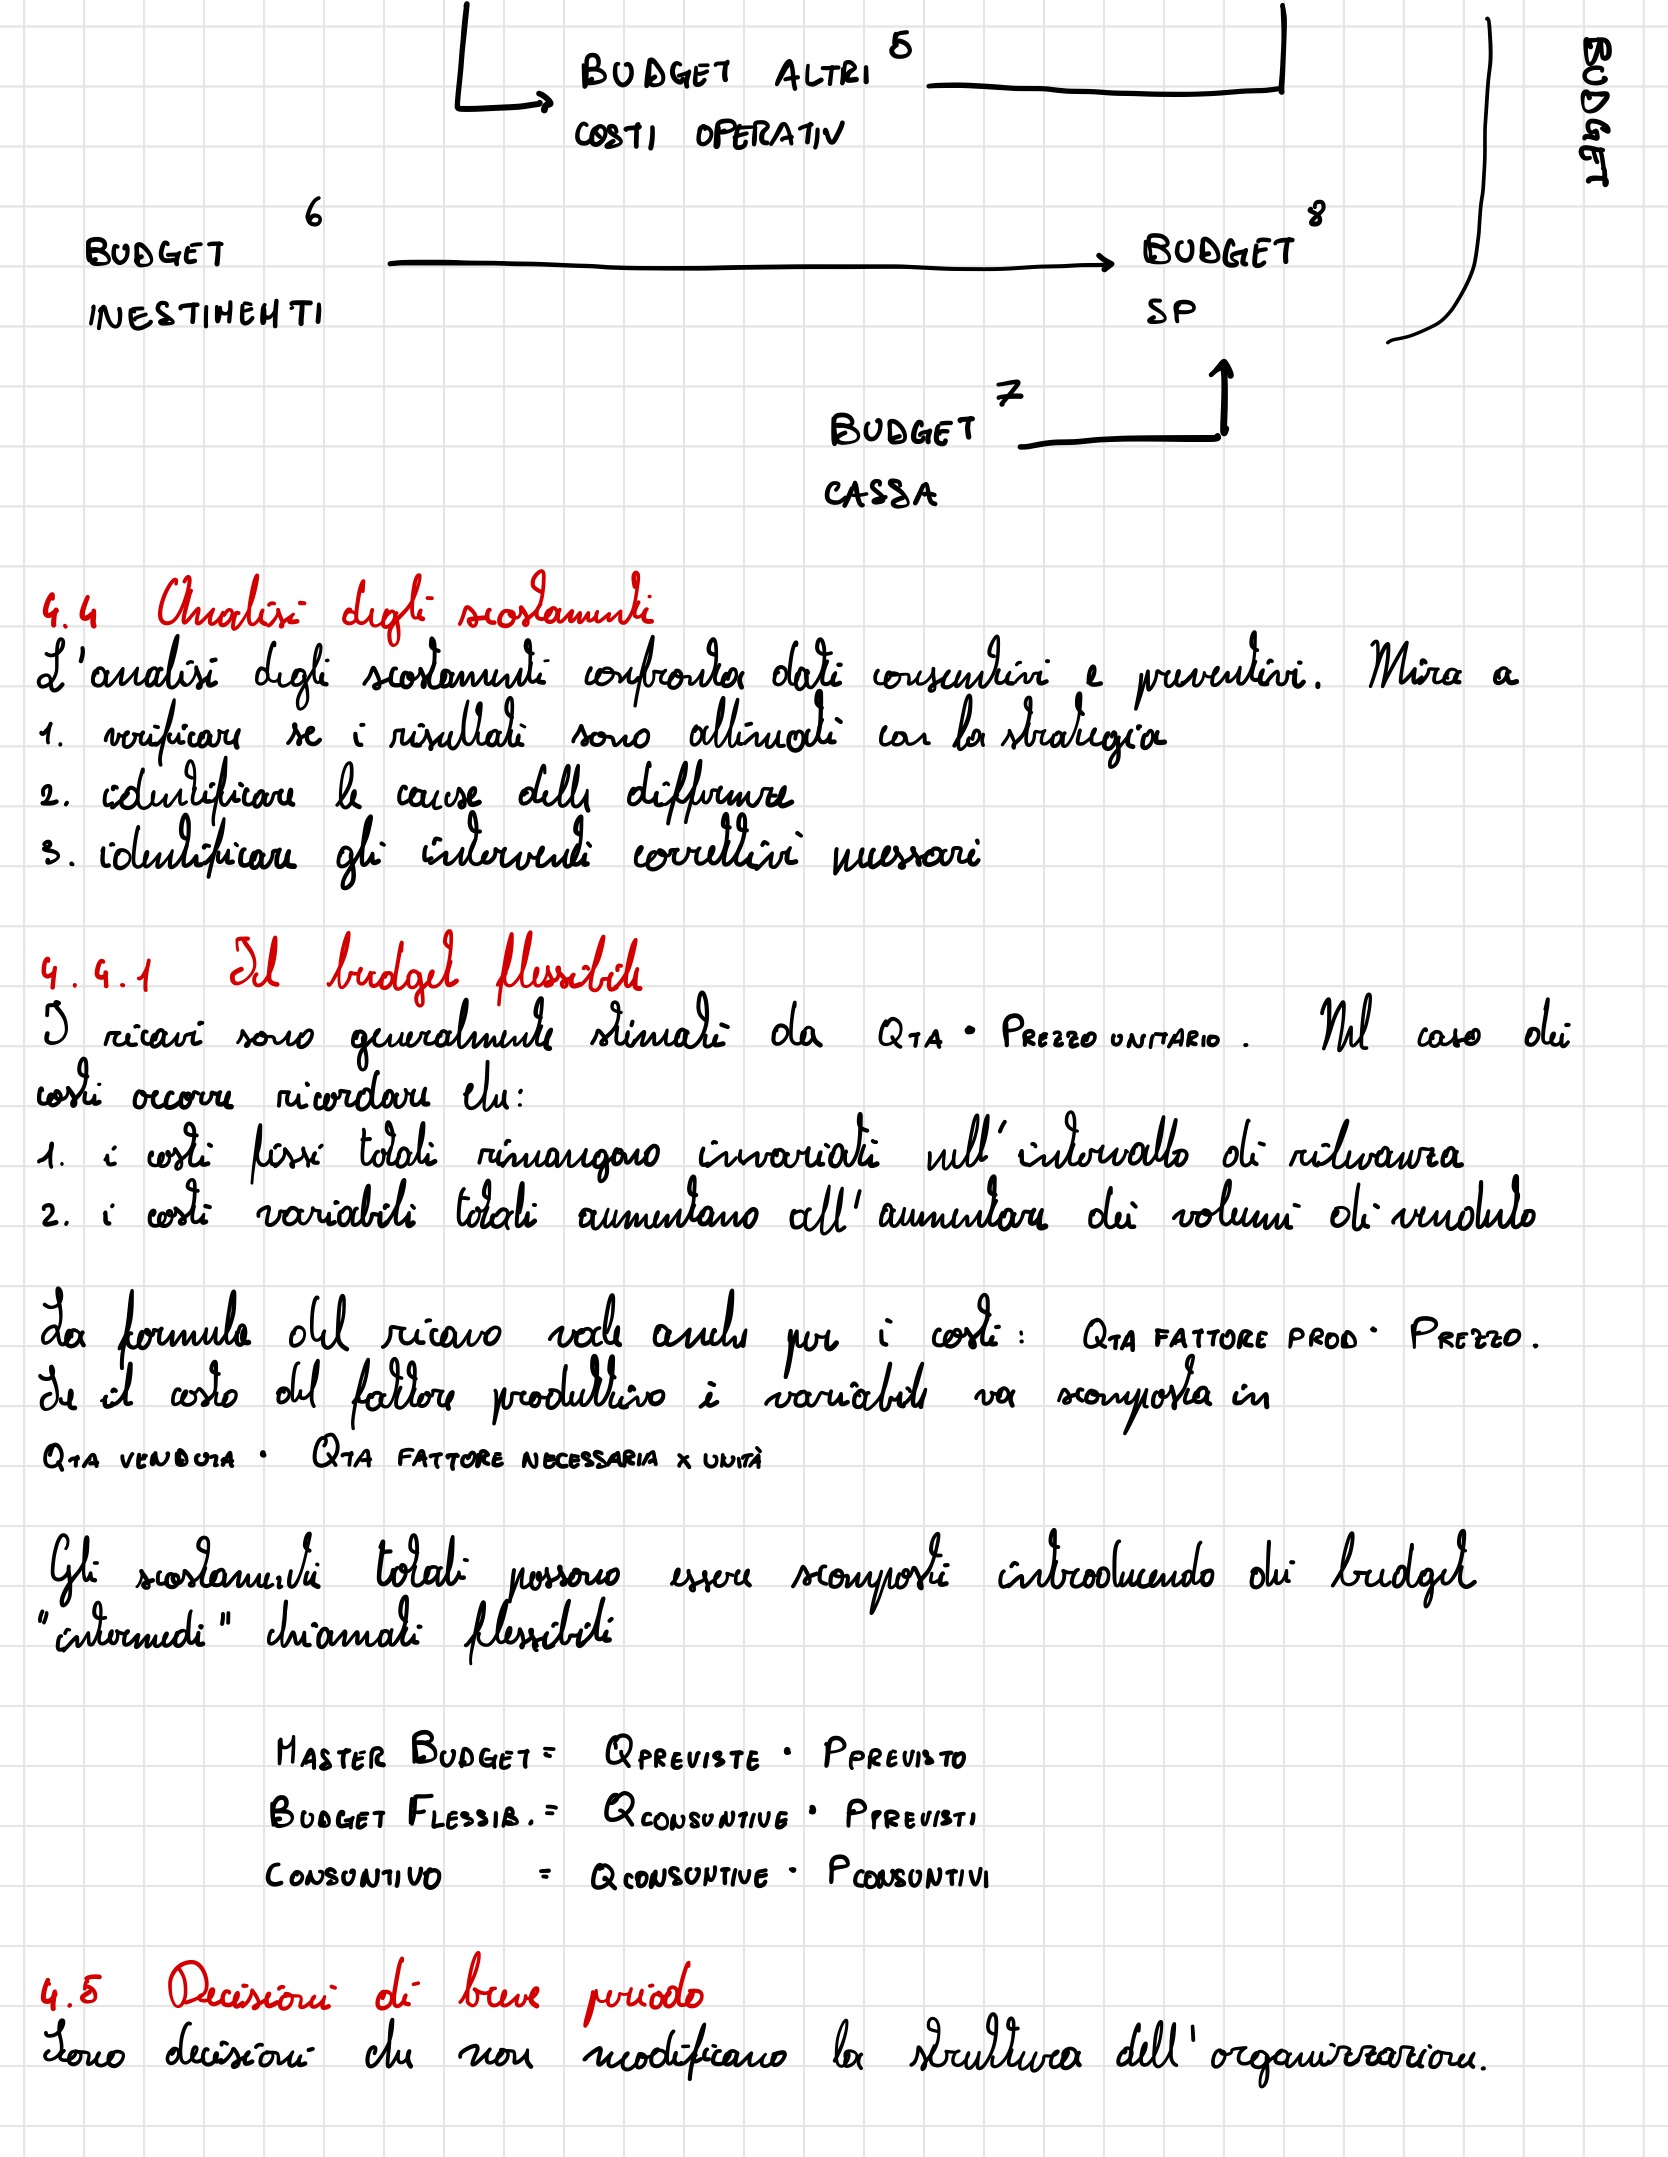 BUDGET ALTRI 5
COSTI OPERATIV
BUDGET
BUDGET 6
INESTIMENTI
BUDGET 8
SP
BUDGET 7
CASSA
4.4 Analisi degli scostamenti
L'analisi degli scostamenti confronta dati consuntivi e preventivi. Mira a
1. verificare se i risultati sono allineati con la strategia
2. identificare le cause delle differenze
3. identificare gli interventi correttivi necessari
4.4.1 Il budget flessibile
I ricavi sono generalmente stimati da QTA · PREZZO UNITARIO. Nel caso dei
costi occorre ricordare che:
1. i costi fissi totali rimangono invariati nell'intervallo di rilevanza
2. i costi variabili totali aumentano all'aumentare dei volumi di venduto
La formula del ricavo vale anche per i costi: QTA FATTORE PROD · PREZZO.
Se il costo del fattore produttivo è variabile va scomposta in
QTA VENDUTA · QTA FATTORE NECESSARIA X UNITÀ
Gli scostamenti totali possono essere scomposti introducendo dei budget
"intermedi" chiamati flessibili
MASTER BUDGET = QPREVISTE · PPREVISTO
BUDGET FLESSIB. = QCONSUNTIVE · PPREVISTI
CONSUNTIVO = QCONSUNTIVE · PCONSUNTIVI
4.5 Decisioni di breve periodo
Sono decisioni che non modificano la struttura dell'organizzazione.